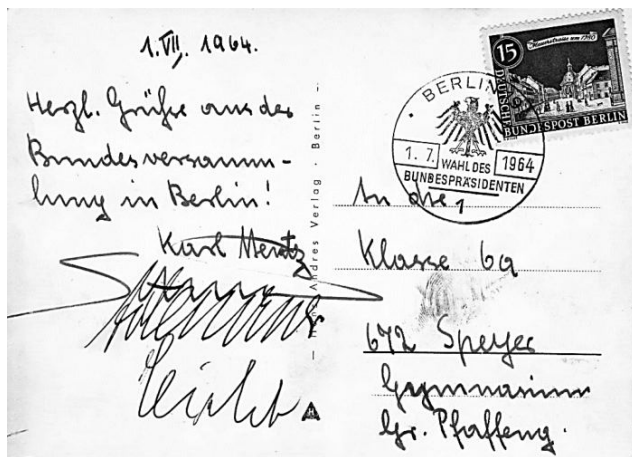 1. VII. 1964.
Herzl. Grüße aus der
Bundesversamm-
lung in Berlin!
Karl Mentz
Andres Verlag · Berlin –
15
Mauerstrasse um 1780
DEUTSCHE
BUNDESPOST BERLIN
BERLIN
1. 7. WAHL DES 1964
BUNDESPRÄSIDENTEN
1
An die
Klasse 6a
672 Speyer
Gymnasium
Gr. Pfaffeng.